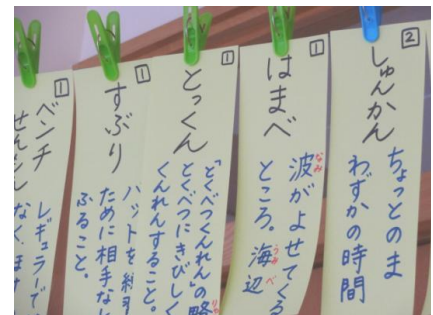 2
しゅんかん
ちょっとのま
わずかの時間
1
はまべ
波がよせてくる
なみ
ところ。海辺
うみべ
1
とっくん
「とくべつくんれん」の略
とくべつにきびしく
くんれんすること。
1
すぶり
バットを
ために相手なし
ふること。
1
ベンチ
レギュラーで